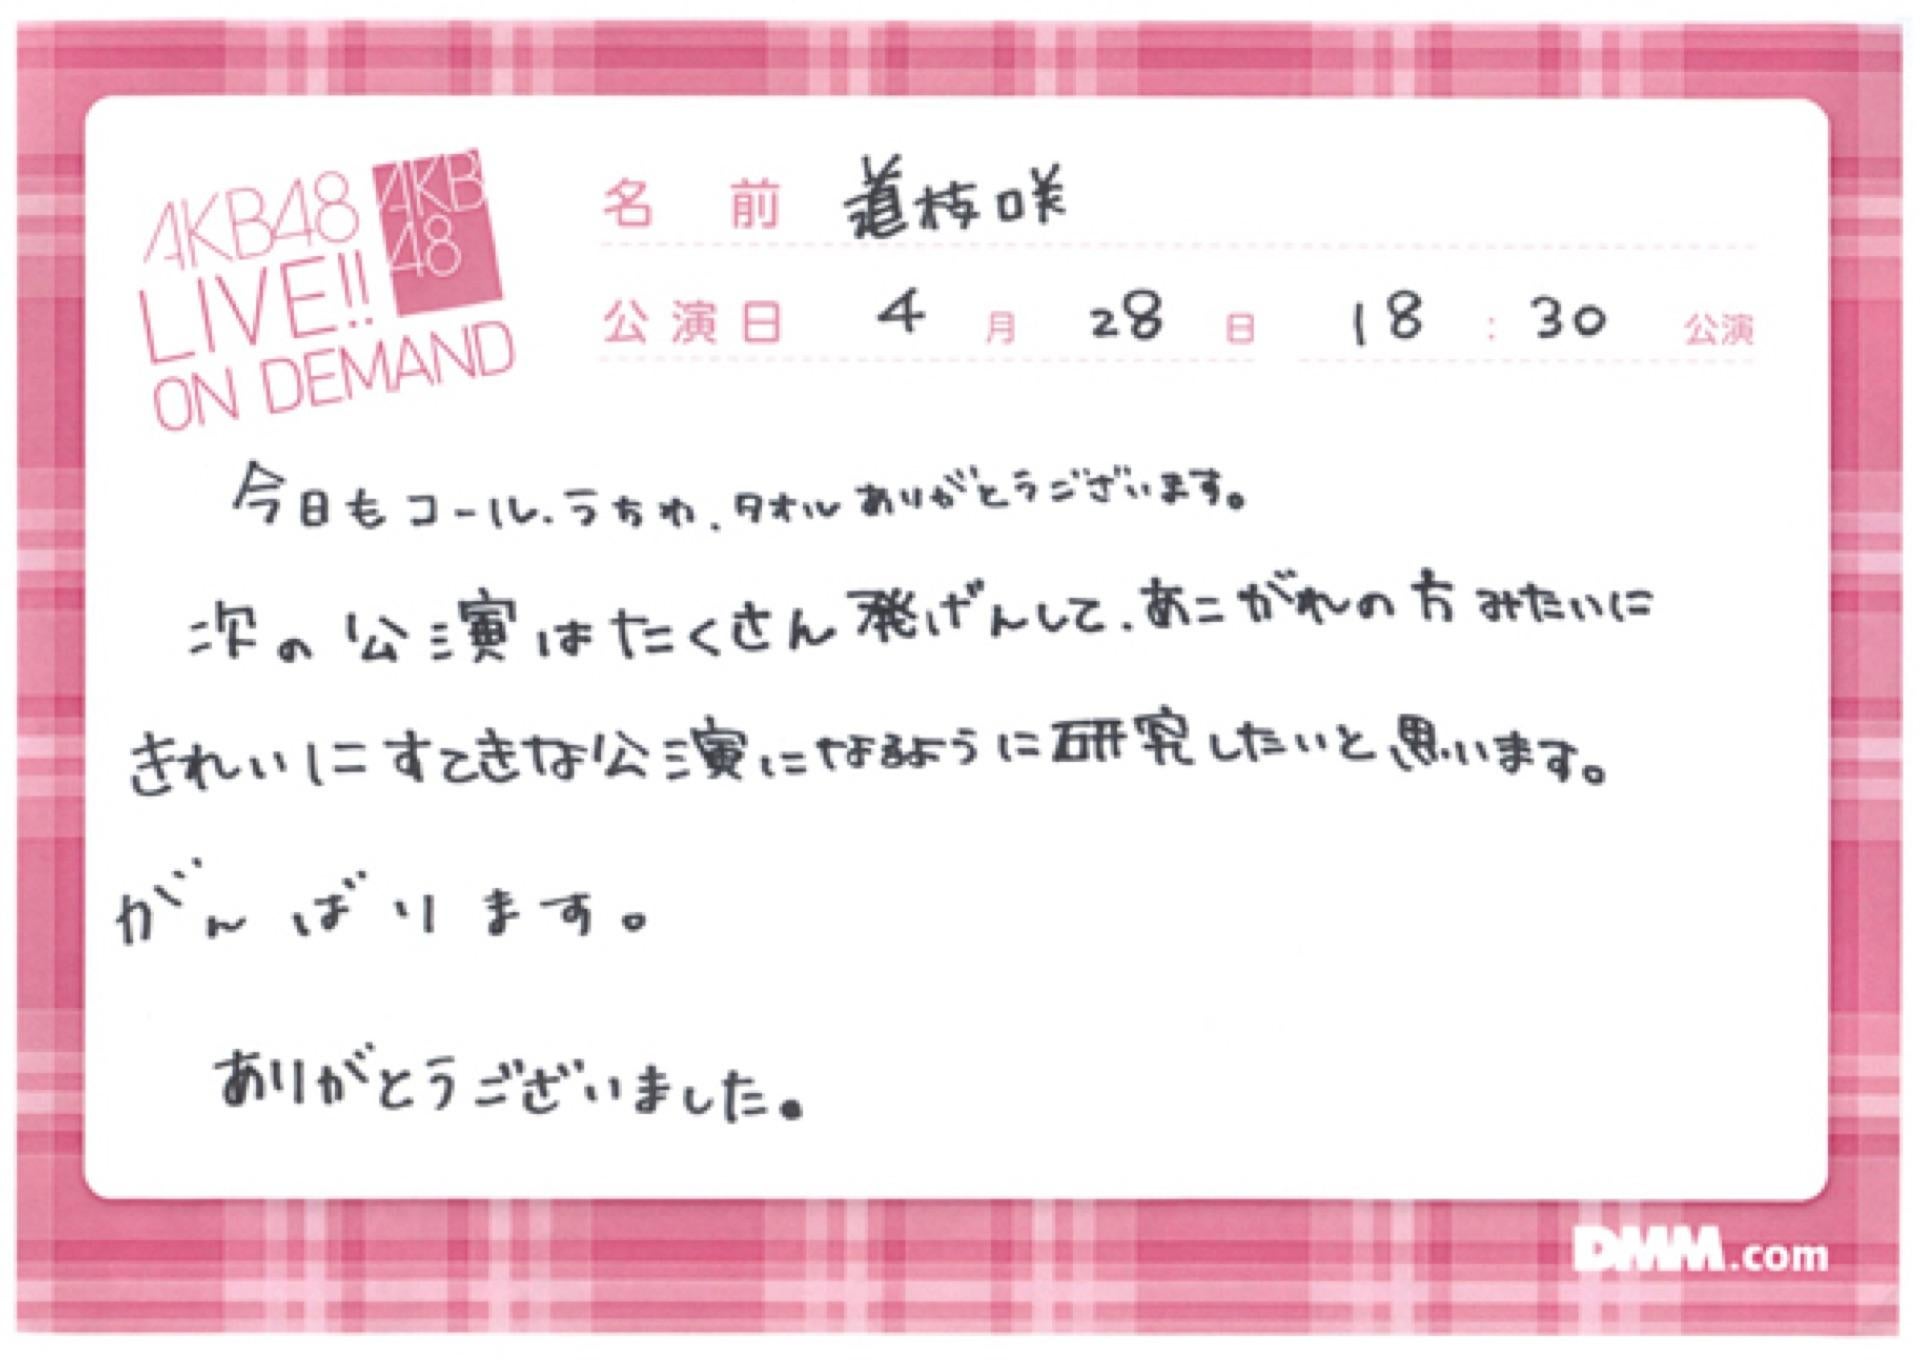 AKB48
LIVE!!
ON DEMAND
AKB
48
名前 道枝咲
公演日 4月28日 18:30公演
今日もコール、うちわ、タオルありがとうございます。
次の公演はたくさん発げんして、あこがれの方みたいに
きれいにすてきな公演になるように研究したいと思います。
がんばります。
ありがとうございました。
DMM.com